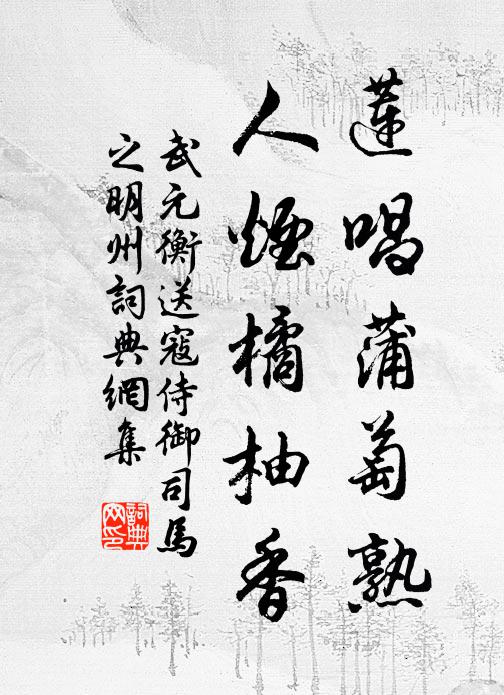 蓮唱蒲萄熟
人煙橘柚香
武元衡送寇侍御司馬
之明州詞典網集
詞典
网印